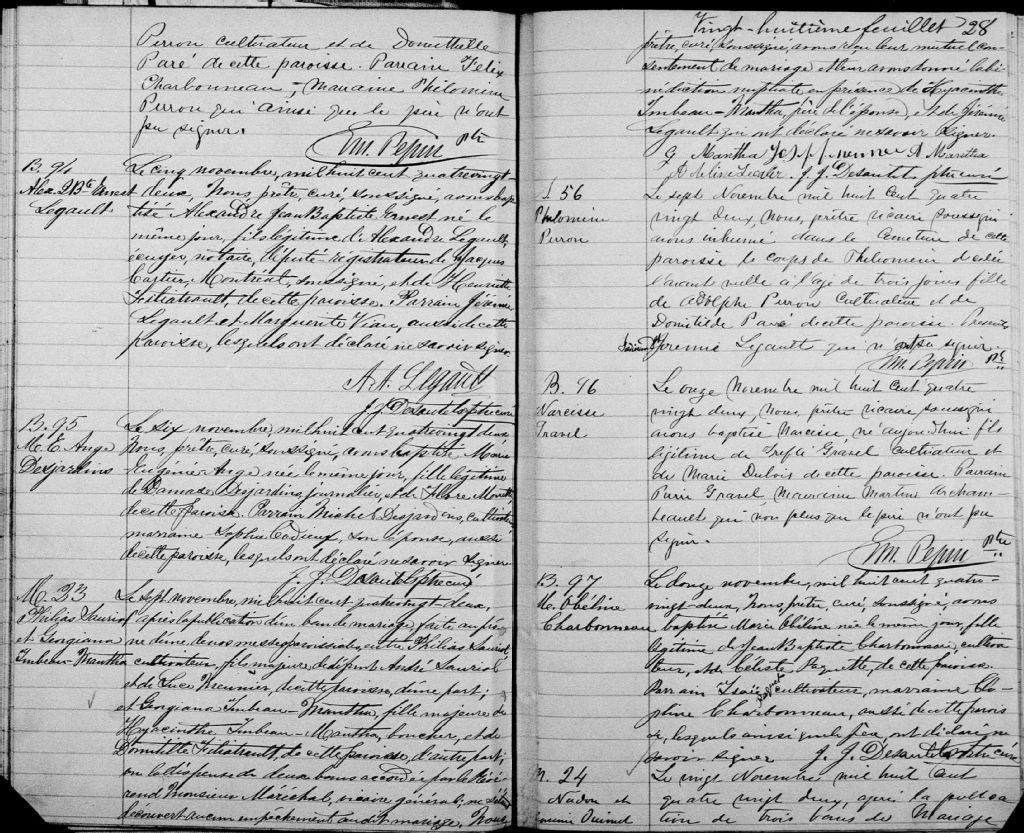 Perron cultivateur et de Domithilde
Paré de cette paroisse. Parrain Felix
Charbonneau, Marraine Philomène
Perron qui ainsi que le père n'ont
pu signer.
Em. Pepin ptr
B. 94
Alex. J. Bte Ernest
Legault
Le cinq novembre, mil huit cent quatre vingt
deux, Nous, prêtre, curé, soussigné, avons bap-
tisé Alexandre Jean Baptiste Ernest né le
même jour, fils légitime de Alexandre Legault,
écuyer, notaire, député-régistrateur de Jacques
Cartier, Montréal, soussigné, et de Henriette
Filiatrault, de cette paroisse. Parrain Jérémie
Legault et Marguerite Viau, aussi de cette
paroisse, lesquels ont déclaré ne savoir signer.
A. A. Legault
J. J. Desautels ptre curé
B. 95
M. E. Ange
Desjardins
Le six novembre, mil huit cent quatre vingt deux
Nous, prêtre, curé, soussigné, avons baptisé Marie
Eugénie Ange née le même jour, fille légitime
de Damase Desjardins, journalier, et de
de cette paroisse. Parrain Michel Desjardins, cultivateur
marraine Sophie Cadieux, son épouse, aussi
de cette paroisse, lesquels ont déclaré ne savoir signer
J. J. Desautels ptre curé
M. 23
Philias Lauriol
et Georgiana
Imbeau-Mantha
Le sept novembre, mil huit cent quatre vingt-deux,
après la publication d'un ban de mariage, faite au prô-
ne d'une de nos messes paroissiales, entre Philias Lauriol
cultivateur, fils majeur de défunt André Lauriol
et de Luce Meunier, de cette paroisse, d'une part;
et Georgiana Imbeau-Mantha, fille majeure de
Hyacinthe Imbeau-Mantha, boucher, et de
Domitilde Filiatrault, de cette paroisse, d'autre part,
vu la dispense de deux bans accordée par le Révé-
rend Monsieur Maréchal, vicaire général, ne s'étant
découvert aucun empêchement au dit mariage, Nous
Vingt-huitième feuillet 28
prêtre, curé, soussigné, avons reçu leur mutuel con-
sentement de mariage et leur avons donné la bé-
nédiction nuptiale en présence de Hyacinthe
Imbeau-Mantha, père de l'épouse, et de Jérémie
Legault qui ont déclaré ne savoir signer.
G Mantha A Mantha
J. J. Desautels ptre curé
S 56
Philomène
Perron
Le sept Novembre mil huit cent quatre
vingt deux, Nous, prêtre vicaire soussigné
avons inhumé dans le Cimetière de cette
paroisse le corps de Philomène décédée
l'avant veille à l'age de trois jours fille
de Adolphe Perron Cultivateur et de
Domitilde Paré de cette paroisse. Présents
Jeremie Legault qui n'ont pu signer.
Em. Pepin ptr
B. 96
Narcisse
Gravel
Le onze Novembre mil huit cent quatre
vingt deux, Nous, prêtre vicaire soussigné
avons baptisé Narcisse, né aujourd'hui fils
légitime de Treflé Gravel Cultivateur et
de Marie Dubois de cette paroisse. Parrain
Pierre Gravel Marraine Martine Archam-
beault qui non plus que le père n'ont pu
signer.
Em. Pepin ptre
B. 97
M. Obéline
Charbonneau
Le douze novembre, mil huit cent quatre-
vingt-deux, Nous prêtre, curé, soussigné, avons
baptisé Marie Obéline née le même jour, fille
légitime de Jean Baptiste Charbonneau, cultiva-
teur, et de Céleste Paquette, de cette paroisse.
Parrain Isaïe Paquette cultivateur, marraine Clo-
phire Charbonneau, aussi de cette parois-
se, lesquels ainsi que le père, ont déclaré ne
savoir signer J. J. Desautels ptre curé
M. 24
Nadon et
Ouimet
Le vingt Novembre mil huit cent
quatre vingt deux, après la publica-
tion de trois bans de Mariage